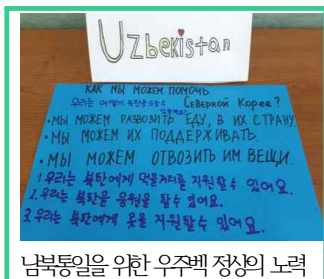 Uzbekistan
КАК МЫ МОЖЕМ ПОМОЧЬ
우리는 어떻게 북한을 도울수 있을까요?
СЕВЕРНОЙ КОРЕЕ?
• МЫ МОЖЕМ РАЗВОЗИТЬ ЕДУ, В ИХ СТРАНУ.
• МЫ МОЖЕМ ИХ ПОДДЕРЖИВАТЬ.
• МЫ МОЖЕМ ОТВОЗИТЬ ИМ ВЕЩИ.
1. 우리는 북한에게 먹을거리를 지원할수 있어요.
2. 우리는 북한을 응원을 할수 있어요.
3. 우리는 북한에게 옷을 지원할수 있어요.
남북통일을 위한 우주벡 정상의 노력